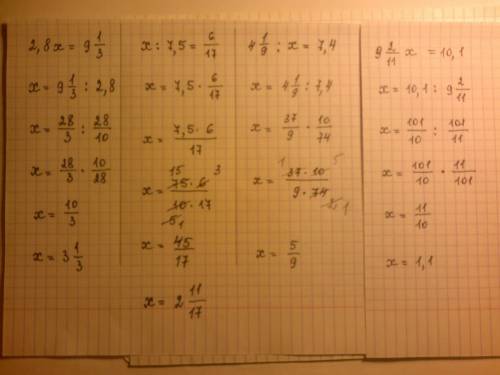 2,8x = 9 1/3
x = 9 1/3 : 2,8
x = 28/3 : 28/10
x = 28/3 · 10/28
x = 10/3
x = 3 1/3
x : 7,5 = 6/17
x = 7,5 · 6/17
x = 7,5 · 6/17
15 3
x = 75 · 6/10 · 17
5 1
x = 45/17
x = 2 11/17
4 1/9 : x = 7,4
x = 4 1/9 : 7,4
x = 37/9 · 10/74
1 5
x = 37 · 10/9 · 74
2 1
x = 5/9
9 2/11 x = 10,1
x = 10,1 : 9 2/11
x = 101/10 : 101/11
x = 101/10 · 11/101
x = 11/10
x = 1,1